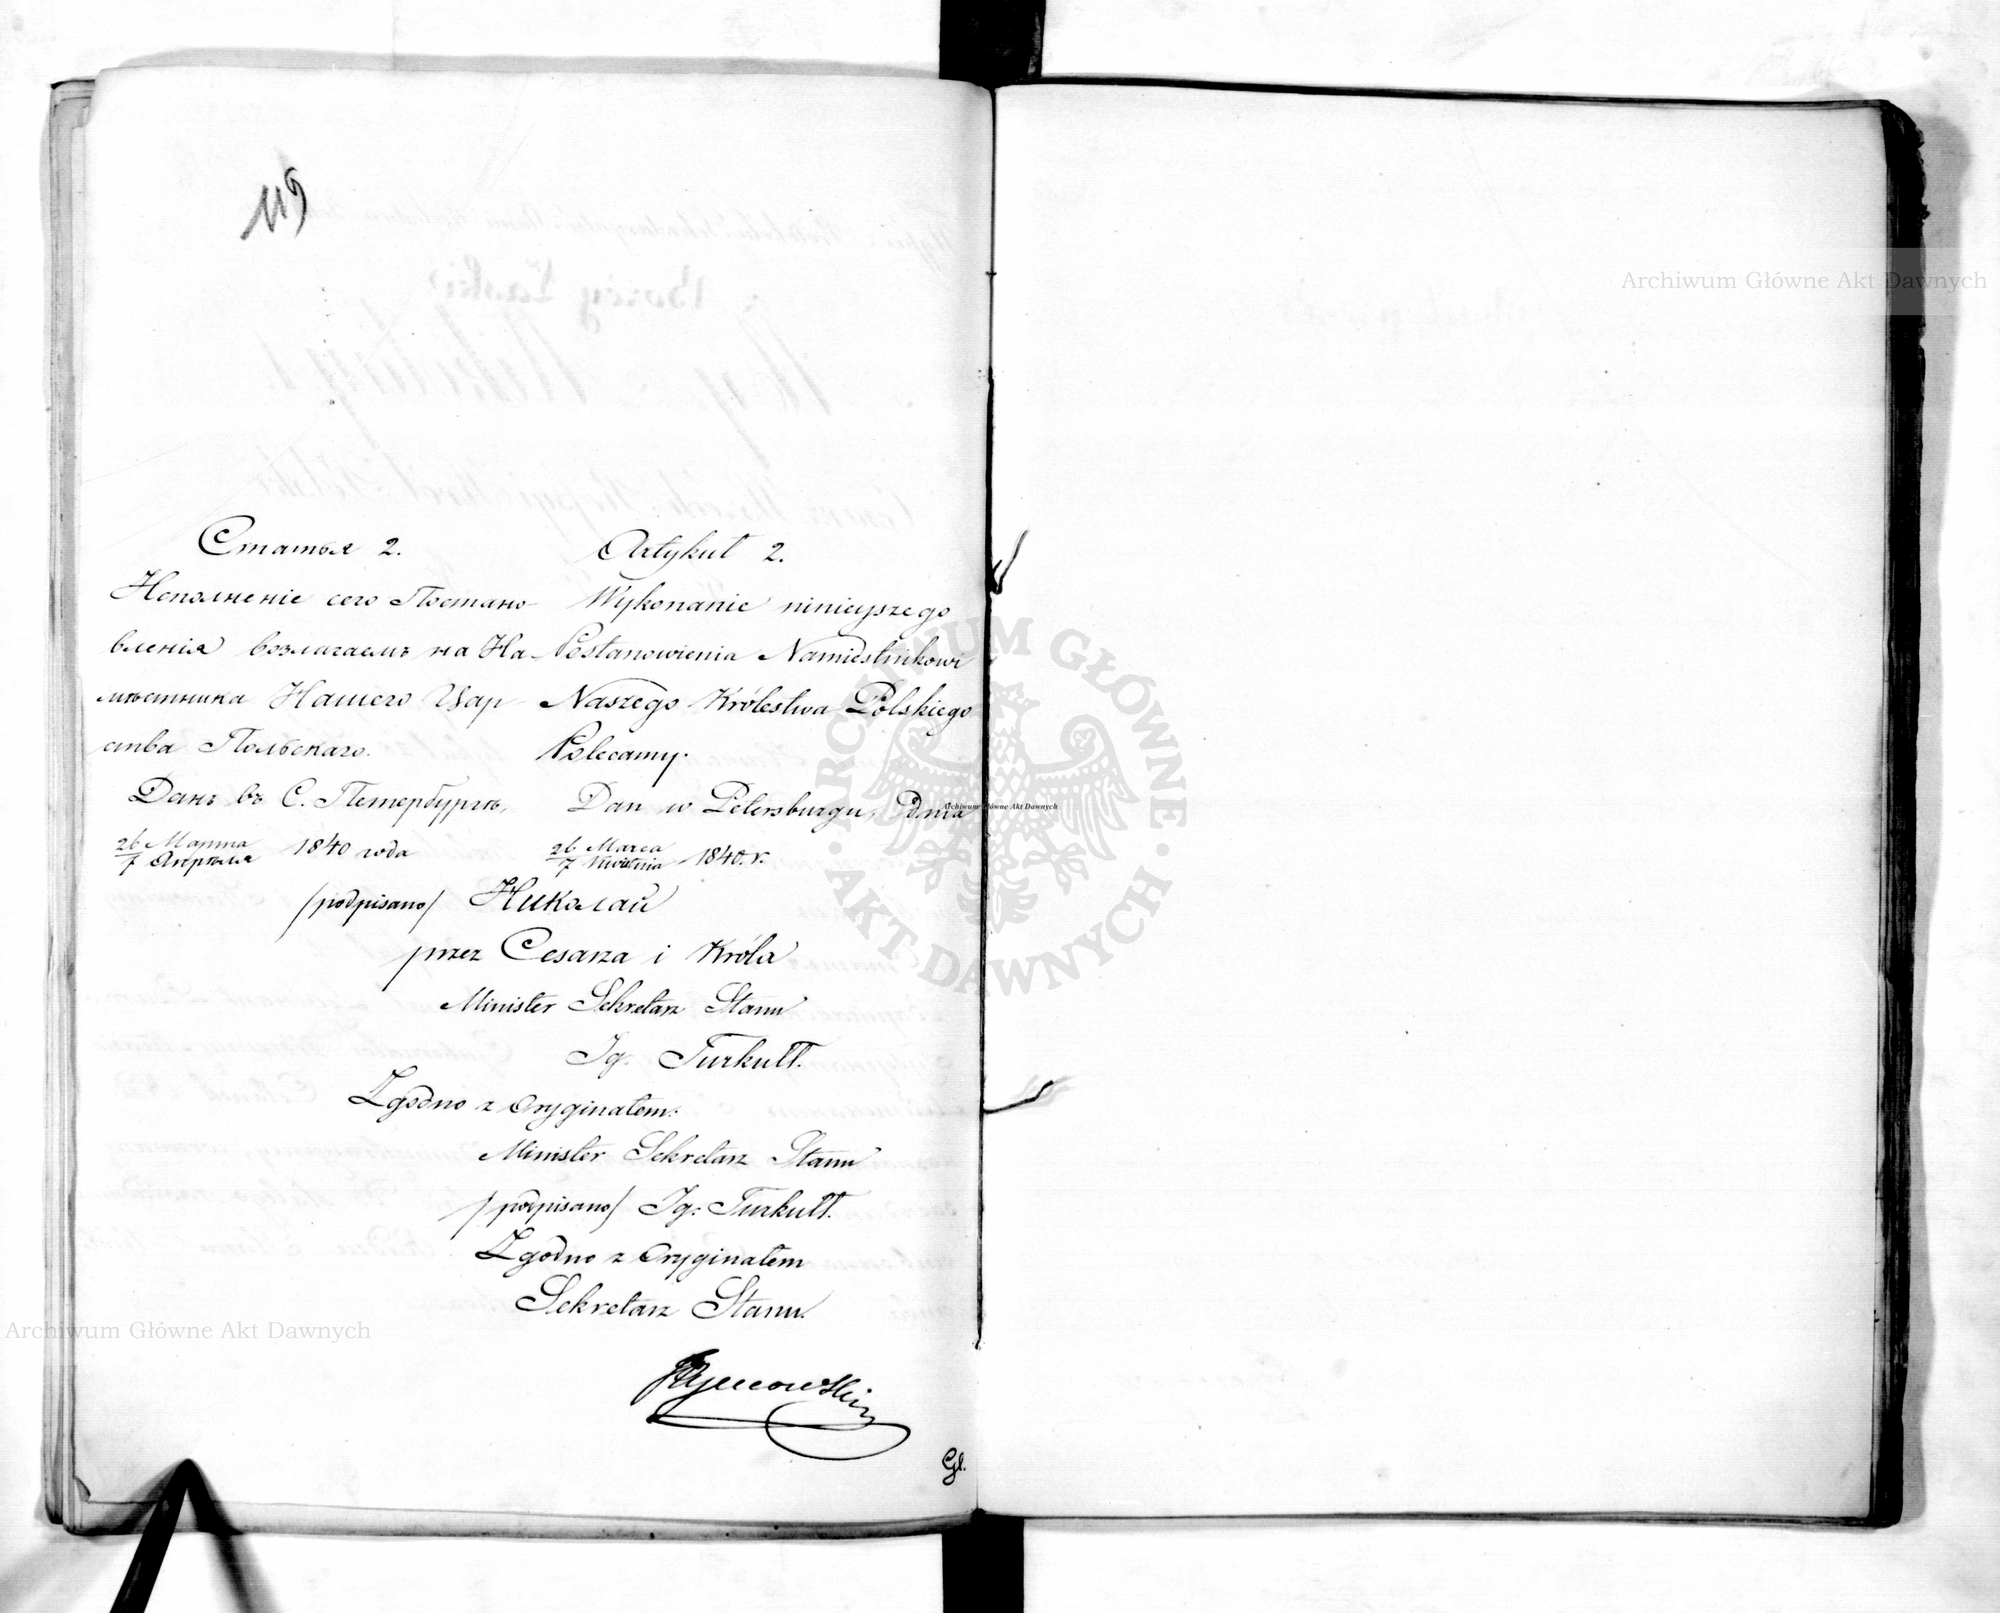 119
Статья 2.
Исполненіе сего Постано-
вленія возлагаемъ на На-
мѣстника Нашего Цар-
ства Польскаго.
Данъ въ С. Петербургѣ,
26 Марта
7 Апрѣля 1840 года
Artykuł 2.
Wykonanie niniejszego
Postanowienia Namiestnikowi
Naszego Królestwa Polskiego
Polecamy.
Dan w Petersburgu, dnia
26 Marca
7 Kwietnia 1840. r.
/podpisano/ Николай
przez Cesarza i Króla
Minister Sekretarz Stanu
Ig. Turkułł.
Zgodno z Oryginałem:
Minister Sekretarz Stanu
/podpisano/ Ig: Turkułł.
Zgodno z Oryginałem
Sekretarz Stanu.
Gl.
Archiwum Główne Akt Dawnych
Archiwum Główne Akt Dawnych
Archiwum Główne Akt Dawnych
ARCHIWUM GŁÓWNE
AKT DAWNYCH